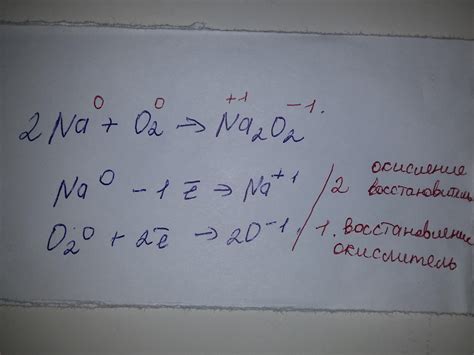 2Na⁰ + O₂⁰ → Na₂⁺¹O₂⁻¹.
Na⁰ - 1ē → Na⁺¹ / 2 окисление восстановитель
O₂⁰ + 2ē → 2O⁻¹ / 1. восстановление окислитель